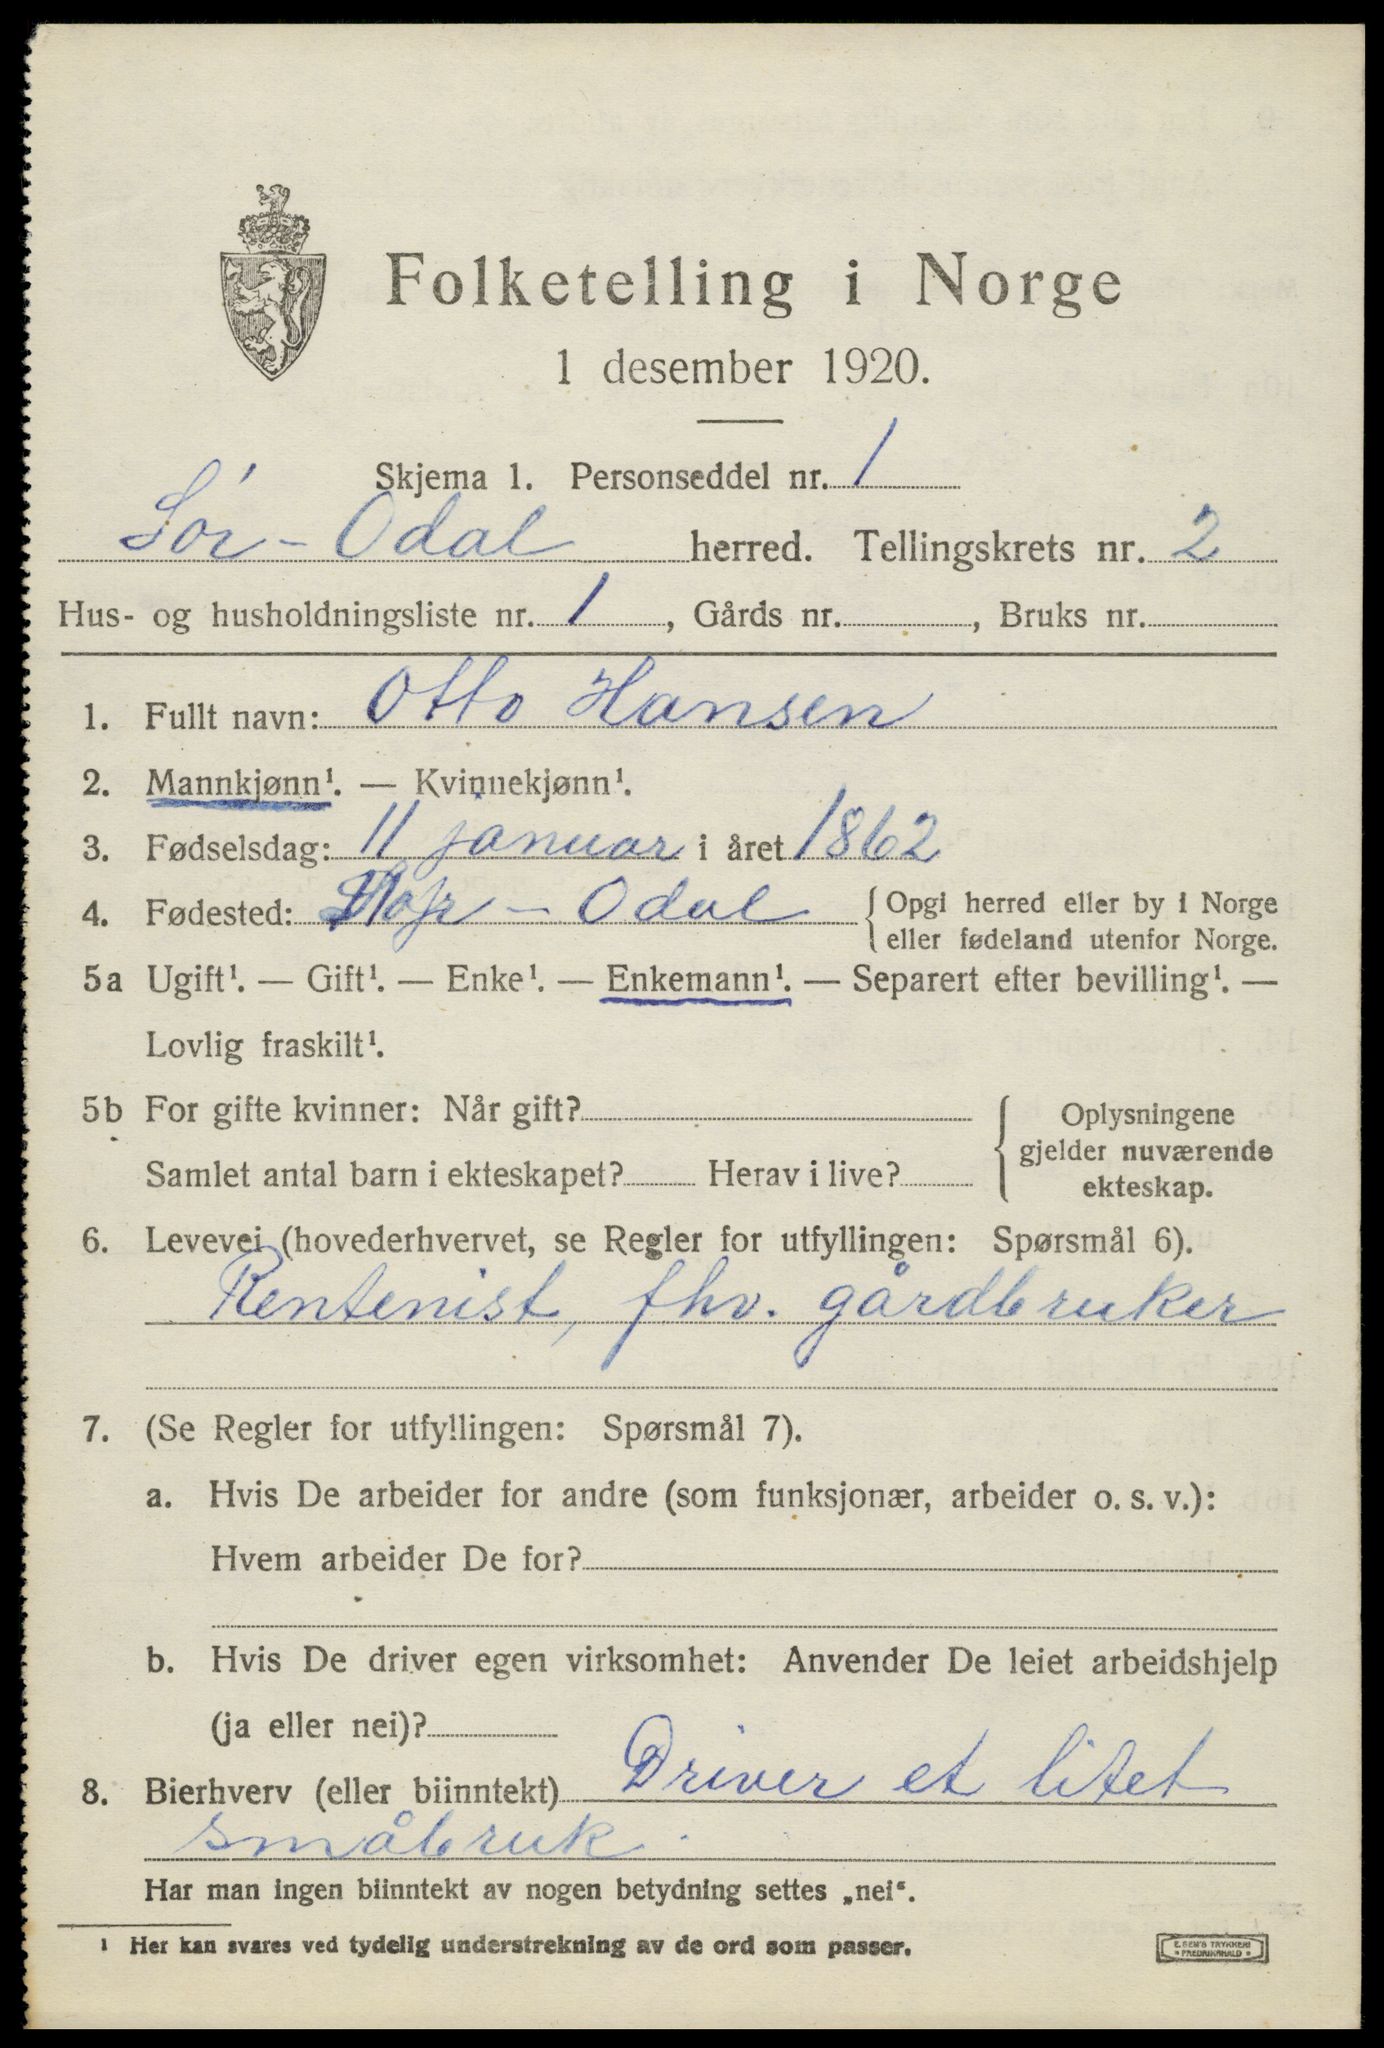 Folketelling i Norge
1 desember 1920.
Skjema 1. Personseddel nr. 1
Sör-Odal herred. Tellingskrets nr. 2
Hus- og husholdningsliste nr. 1, Gårds nr. , Bruks nr.
1. Fullt navn: Otto Hansen
2. Mannkjønn¹. — Kvinnekjønn¹.
3. Fødselsdag: 11 januar i året 1862
4. Fødested: - Odal {Opgi herred eller by i Norge
eller fødeland utenfor Norge.
5a Ugift¹. — Gift¹. — Enke¹. — Enkemann¹. — Separert efter bevilling¹. —
Lovlig fraskilt¹.
5b For gifte kvinner: Når gift? { Oplysningene
gjelder nuværende
Samlet antal barn i ekteskapet? Herav i live? ekteskap.
6. Levevei (hovederhvervet, se Regler for utfyllingen: Spørsmål 6).
Rentenist, fhv. gårdbruker
7. (Se Regler for utfyllingen: Spørsmål 7).
a. Hvis De arbeider for andre (som funksjonær, arbeider o. s. v.):
Hvem arbeider De for?
b. Hvis De driver egen virksomhet: Anvender De leiet arbeidshjelp
(ja eller nei)?
8. Bierhverv (eller biinntekt) Driver et litet
småbruk.
Har man ingen biinntekt av nogen betydning settes „nei“.
¹ Her kan svares ved tydelig understrekning av de ord som passer.
E. SEM'S TRYKKERI
FREDRIKSHALD